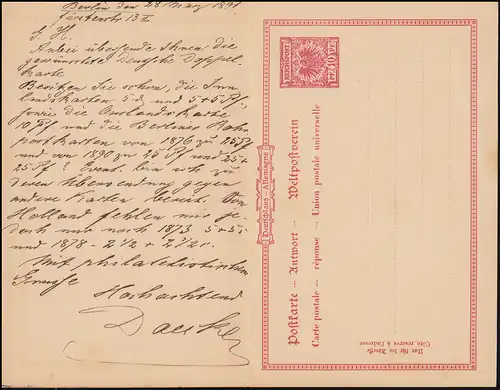 Berlin den 28 März 1891
Fürstenstr. 13 II
G. H.
Anbei übersende Ihnen die
gewünschte Deutsche Doppel-
karte
Besitzen Sie schon, die Inn-
landskarten 5 & und 5+5 Pf,
sowie die Auslandskarte
10 Pf und die Berliner Rohr
postkarten von 1876 zu 25 Pf
und von 1890 zu 25 Pf und 25+
25 Pf? Event. bin ich zu
deren Uebersendung gegen
andere Karten bereit. Von
Holland fehlen mir je-
doch nur noch 1873 5+5 c.
und 1878 - 2½ + 2½ c.
Mit philatelistischem
Grusse
Hochachtend
REICHSPOST
10 PF 10
Deutschland – Allemagne
Postkarte – Antwort – Weltpostverein
Carte postale – réponse – Union postale universelle
Nur für die Adresse
Côté réservé à l'adresse